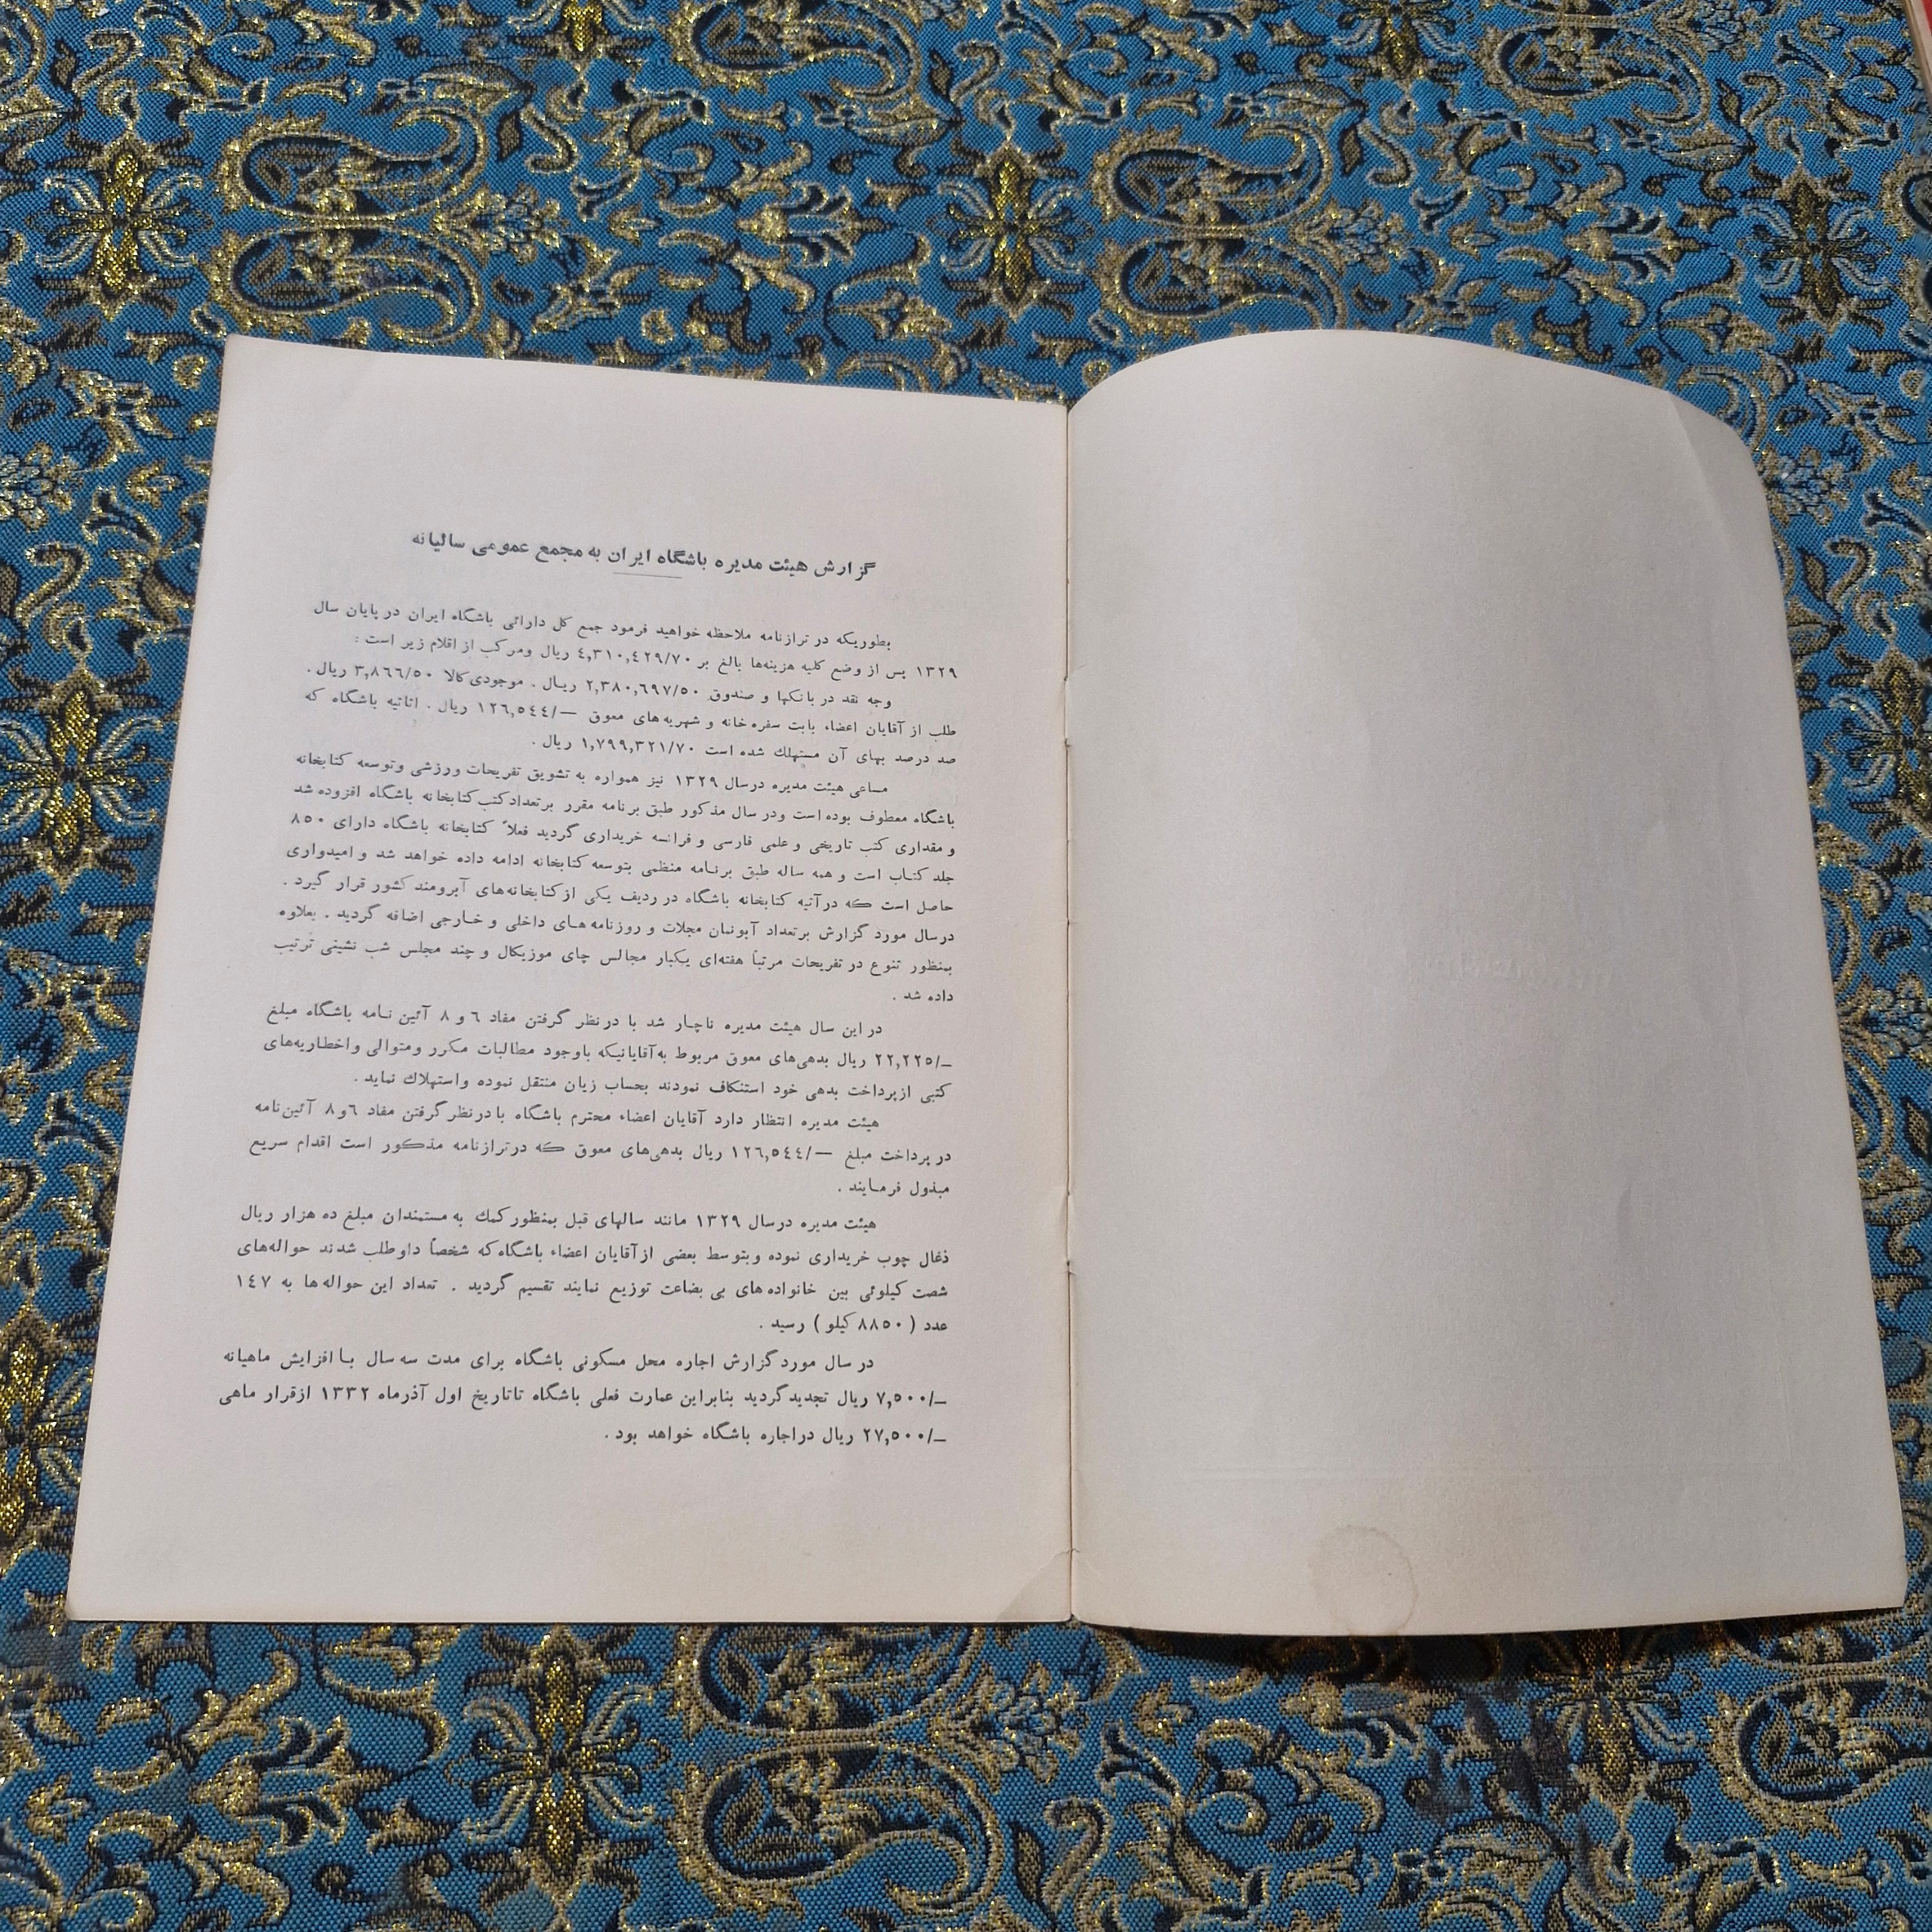 گزارش هیئت مدیره باشگاه ایران به مجمع عمومی سالیانه
بطوریکه در ترازنامه ملاحظه خواهید فرمود جمع کل دارائی باشگاه ایران در پایان سال
۱۳۲۹ پس از وضع کلیه هزینه‌ها بالغ بر ۴,۳۱۰,۴۲۹/۷۰ ریال ومرکب از اقلام زیر است :
وجه نقد در بانکها و صندوق ۲,۳۸۰,۶۹۷/۵۰ ریال . موجودی کالا ۳,۸۶۶/۵۰ ریال .
طلب از آقایان اعضاء بابت سفره خانه و شهریه های معوق —/۱۲۶,۵۴۴ ریال . اثاثیه باشگاه که
صد درصد بهای آن مستهلك شده است ۱,۷۹۹,۳۲۱/۷۰ ریال .
مساعی هیئت مدیره درسال ۱۳۲۹ نیز همواره به تشویق تفریحات ورزشی وتوسعه کتابخانه
باشگاه معطوف بوده است ودر سال مذکور طبق برنامه مقرر برتعداد کتب کتابخانه باشگاه افزوده شد
و مقداری کتب تاریخی و علمی فارسی و فرانسه خریداری گردید فعلاً کتابخانه باشگاه دارای ۸۵۰
جلد کتاب است و همه ساله طبق برنامه منظمی بتوسعه کتابخانه ادامه داده خواهد شد و امیدواری
حاصل است که درآتیه کتابخانه باشگاه در ردیف یکی از کتابخانه‌های آبرومند کشور قرار گیرد .
درسال مورد گزارش برتعداد آبونمان مجلات و روزنامه های داخلی و خارجی اضافه گردید . بعلاوه
بمنظور تنوع در تفریحات مرتباً هفته‌ای یکبار مجالس چای موزیکال و چند مجلس شب نشینی ترتیب
داده شد .
در این سال هیئت مدیره ناچار شد با در نظر گرفتن مفاد ۶ و ۸ آئین نامه باشگاه مبلغ
—/۲۲,۲۲۵ ریال بدهی‌های معوق مربوط به آقایانیکه باوجود مطالبات مکرر ومتوالی واخطاریه‌های
کتبی از پرداخت بدهی خود استنکاف نمودند بحساب زیان منتقل نموده واستهلاك نماید .
هیئت مدیره انتظار دارد آقایان اعضاء محترم باشگاه با در نظر گرفتن مفاد ۶ و ۸ آئین‌نامه
در پرداخت مبلغ —/۱۲۶,۵۴۴ ریال بدهی‌های معوق که درترازنامه مذکور است اقدام سریع
مبذول فرمایند .
هیئت مدیره درسال ۱۳۲۹ مانند سالهای قبل بمنظور کمك به مستمندان مبلغ ده هزار ریال
ذغال چوب خریداری نموده وبتوسط بعضی از آقایان اعضاء باشگاه که شخصاً داوطلب شدند حواله‌های
شصت کیلوئی بین خانواده های بی بضاعت توزیع نمایند تقسیم گردید . تعداد این حواله ها به ۱۴۷
عدد ( ۸۸۵۰ کیلو ) رسید .
در سال مورد گزارش اجاره محل مسکونی باشگاه برای مدت سه سال با افزایش ماهیانه
—/۷,۵۰۰ ریال تجدید گردید بنابراین عمارت فعلی باشگاه تاتاریخ اول آذرماه ۱۳۳۲ ازقرار ماهی
—/۲۷,۵۰۰ ریال در اجاره باشگاه خواهد بود .